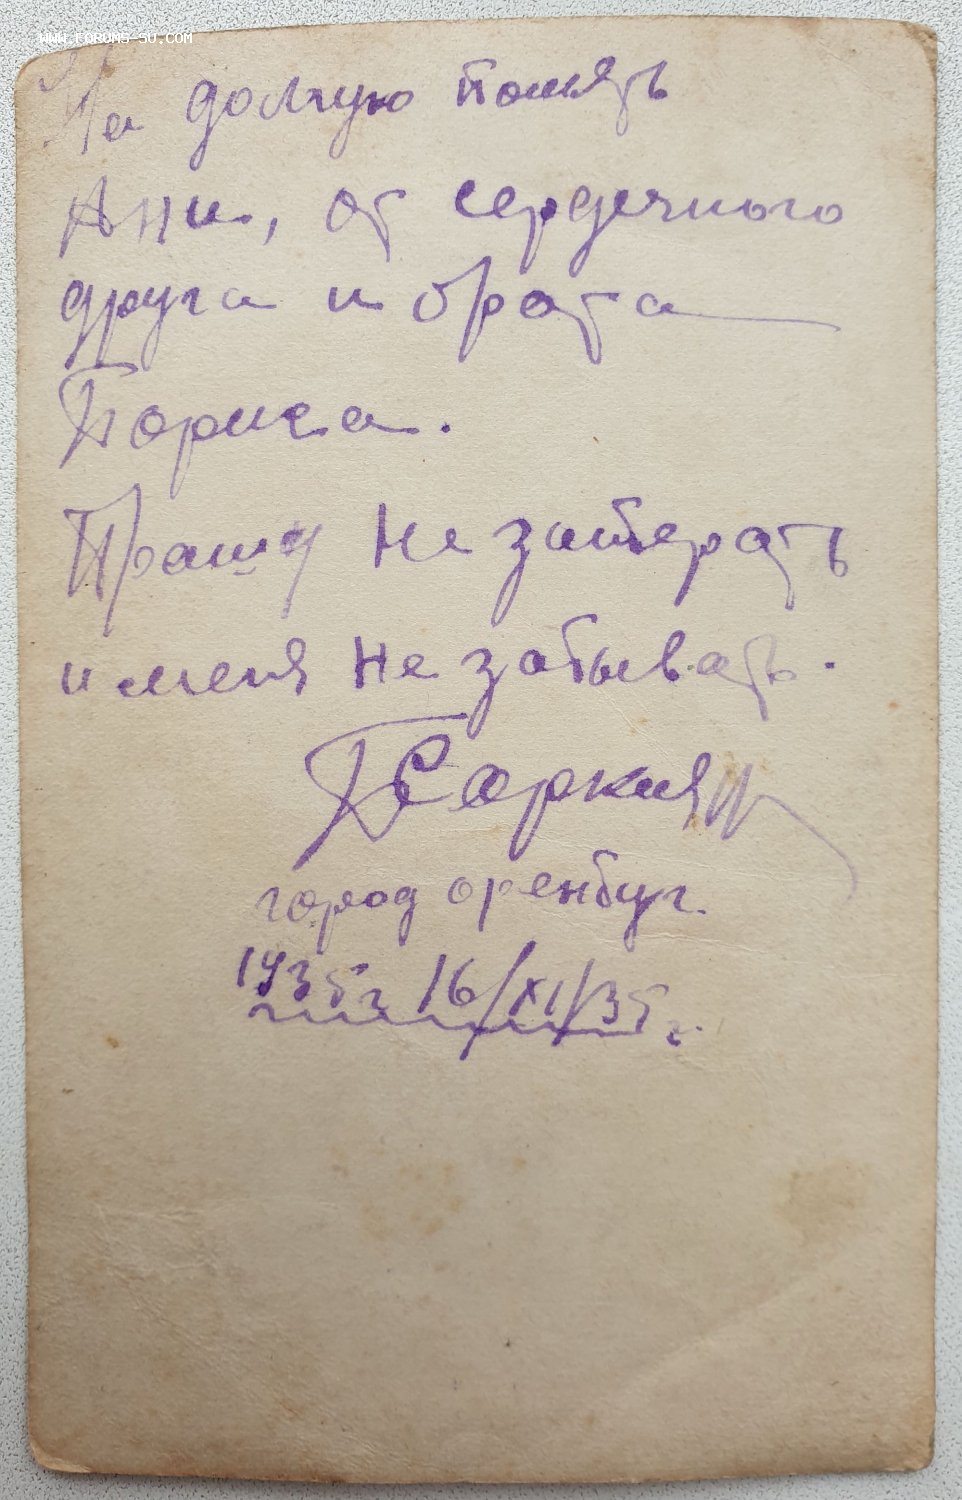 WWW.FORUMS-SU.COM
На долгую память
Ани, от сердечного
друга и брата
Бориса.
Прашу не затерать
и меня не забывать.
город оренбуг.
1935г 16/XI/35 г.